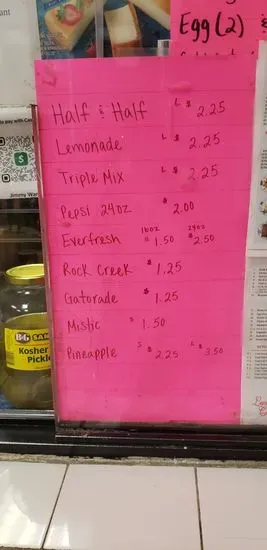 Egg (2)
Half & Half L $ 2.25
Lemonade L $ 2.25
Triple Mix L $ 2.25
Pepsi 24oz $ 2.00
16oz 24oz
Everfresh $ 1.50 $ 2.50
Rock Creek $ 1.25
Gatorade $ 1.25
Mistic $ 1.50
Pineapple S $ 2.25 L $ 3.50
Jimmy War
B&G SAN
Kosher
Pickl